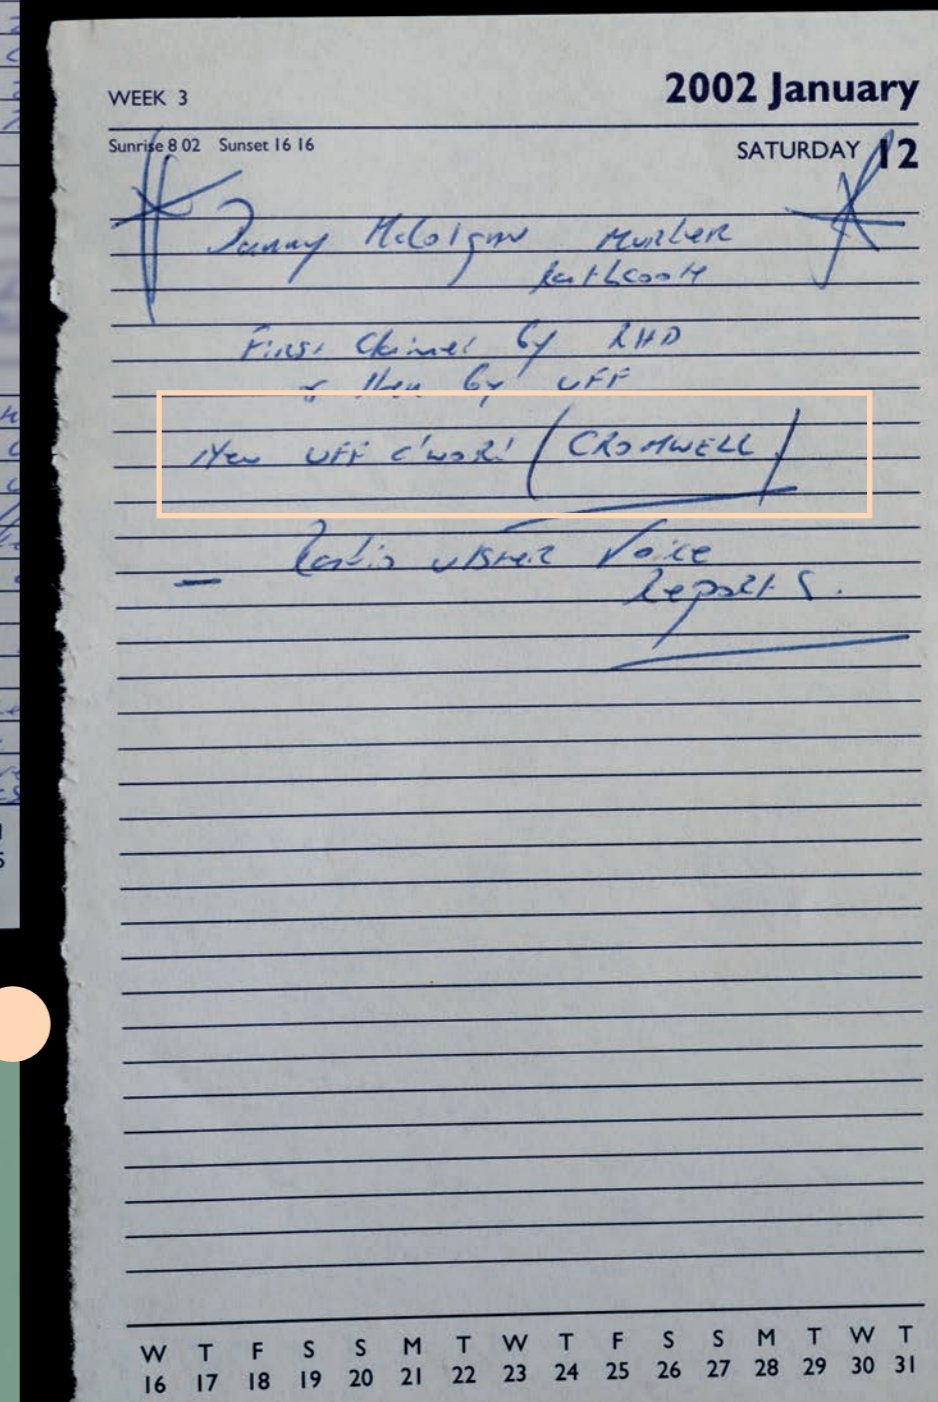 2002 January
WEEK 3
Sunrise 8 02 Sunset 16 16
SATURDAY 12
Danny McColgan Murder
Rathcoole
First Claimed by RHD
& then by UFF
New UFF c'word (CROMWELL)
— Radio Ulster Voice
Reports.
W T F S S M T W T F S S M T W T
16 17 18 19 20 21 22 23 24 25 26 27 28 29 30 31